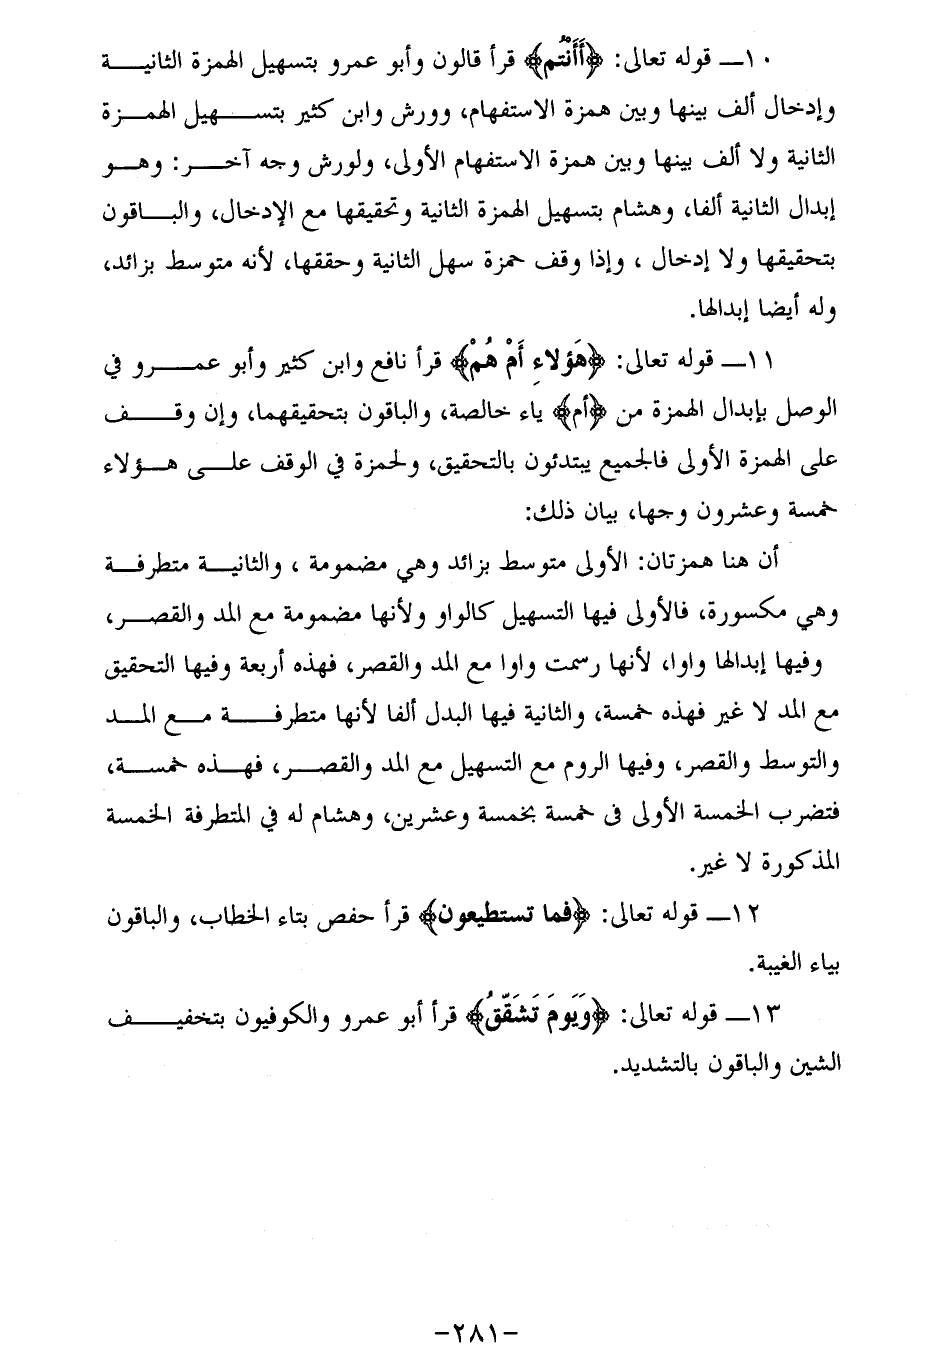 ١٠ـ قوله تعالى: ﴿أَأَنْتُم﴾ قرأ قالون وأبو عمرو بتسهيل الهمزة الثانية
وإدخال ألف بينها وبين همزة الاستفهام، وورش وابن كثير بتسهيل الهمزة
الثانية ولا ألف بينها وبين همزة الاستفهام الأولى، ولورش وجه آخر: وهو
إبدال الثانية ألفا، وهشام بتسهيل الهمزة الثانية وتحقيقها مع الإدخال، والباقون
بتحقيقها ولا إدخال ، وإذا وقف حمزة سهل الثانية وحققها، لأنه متوسط بزائد،
وله أيضا إبدالها.
١١ـ قوله تعالى: ﴿هَؤلاءِ أَمْ هُمْ﴾ قرأ نافع وابن كثير وأبو عمرو في
الوصل بإبدال الهمزة من ﴿أم﴾ ياء خالصة، والباقون بتحقيقهما، وإن وقف
على الهمزة الأولى فالجميع يبتدئون بالتحقيق، ولحمزة في الوقف على هؤلاء
خمسة وعشرون وجها، بيان ذلك:
أن هنا همزتان: الأولى متوسط بزائد وهي مضمومة ، والثانية متطرفة
وهي مكسورة، فالأولى فيها التسهيل كالواو ولأنها مضمومة مع المد والقصر،
وفيها إبدالها واوا، لأنها رسمت واوا مع المد والقصر، فهذه أربعة وفيها التحقيق
مع المد لا غير فهذه خمسة، والثانية فيها البدل ألفا لأنها متطرفة مع المد
والتوسط والقصر، وفيها الروم مع التسهيل مع المد والقصر، فهذه خمسة،
فتضرب الخمسة الأولى فى خمسة بخمسة وعشرين، وهشام له في المتطرفة الخمسة
المذكورة لا غير.
١٢ـ قوله تعالى: ﴿فما تستطيعون﴾ قرأ حفص بتاء الخطاب، والباقون
بياء الغيبة.
١٣ـ قوله تعالى: ﴿وَيَومَ تَشَقَّقُ﴾ قرأ أبو عمرو والكوفيون بتخفيف
الشين والباقون بالتشديد.
-٢٨١-